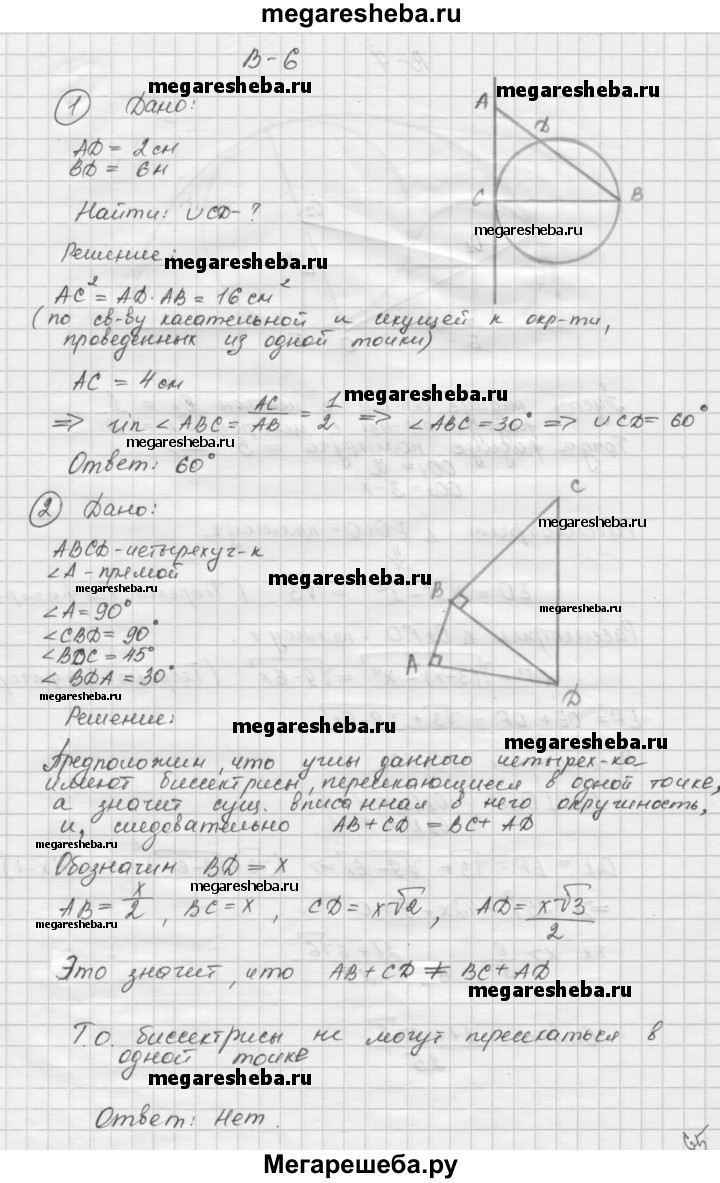 megaresheba.ru
В-6
megaresheba.ru
megaresheba.ru
1 Дано:
A
D
AD = 2 см
BD = 6 м
C
B
Найти: ∪CD - ?
megaresheba.ru
Решение:
megaresheba.ru
AC² = AD · AB = 16 см²
(по св-ву касательной и секущей к окр-ти,
проведенных из одной точки)
AC = 4 см
megaresheba.ru
=> sin ∠ABC = AC/AB = 1/2 => ∠ABC = 30° => ∪CD = 60°
megaresheba.ru
Ответ: 60°
2 Дано:
C
megaresheba.ru
ABCD - четырехуг-к
∠A - прямой
megaresheba.ru
megaresheba.ru
B
∠A = 90°
megaresheba.ru
∠CBD = 90°
∠BDC = 45°
A
∠BDA = 30°
megaresheba.ru
D
Решение:
megaresheba.ru
megaresheba.ru
Предположим, что углы данного четырех-ка
имеют биссектрисы, пересекающиеся в одной точке,
а значит сущ. вписанная в него окружность,
и, следовательно AB + CD = BC + AD
megaresheba.ru
Обозначим BD = x
megaresheba.ru
AB = x/2, BC = x, CD = x√2, AD = x√3/2
megaresheba.ru
Это значит, что AB + CD ≠ BC + AD
megaresheba.ru
Т.о. биссектрисы не могут пересекаться в
одной точке
megaresheba.ru
Ответ: Нет.
Мегарешеба.ру